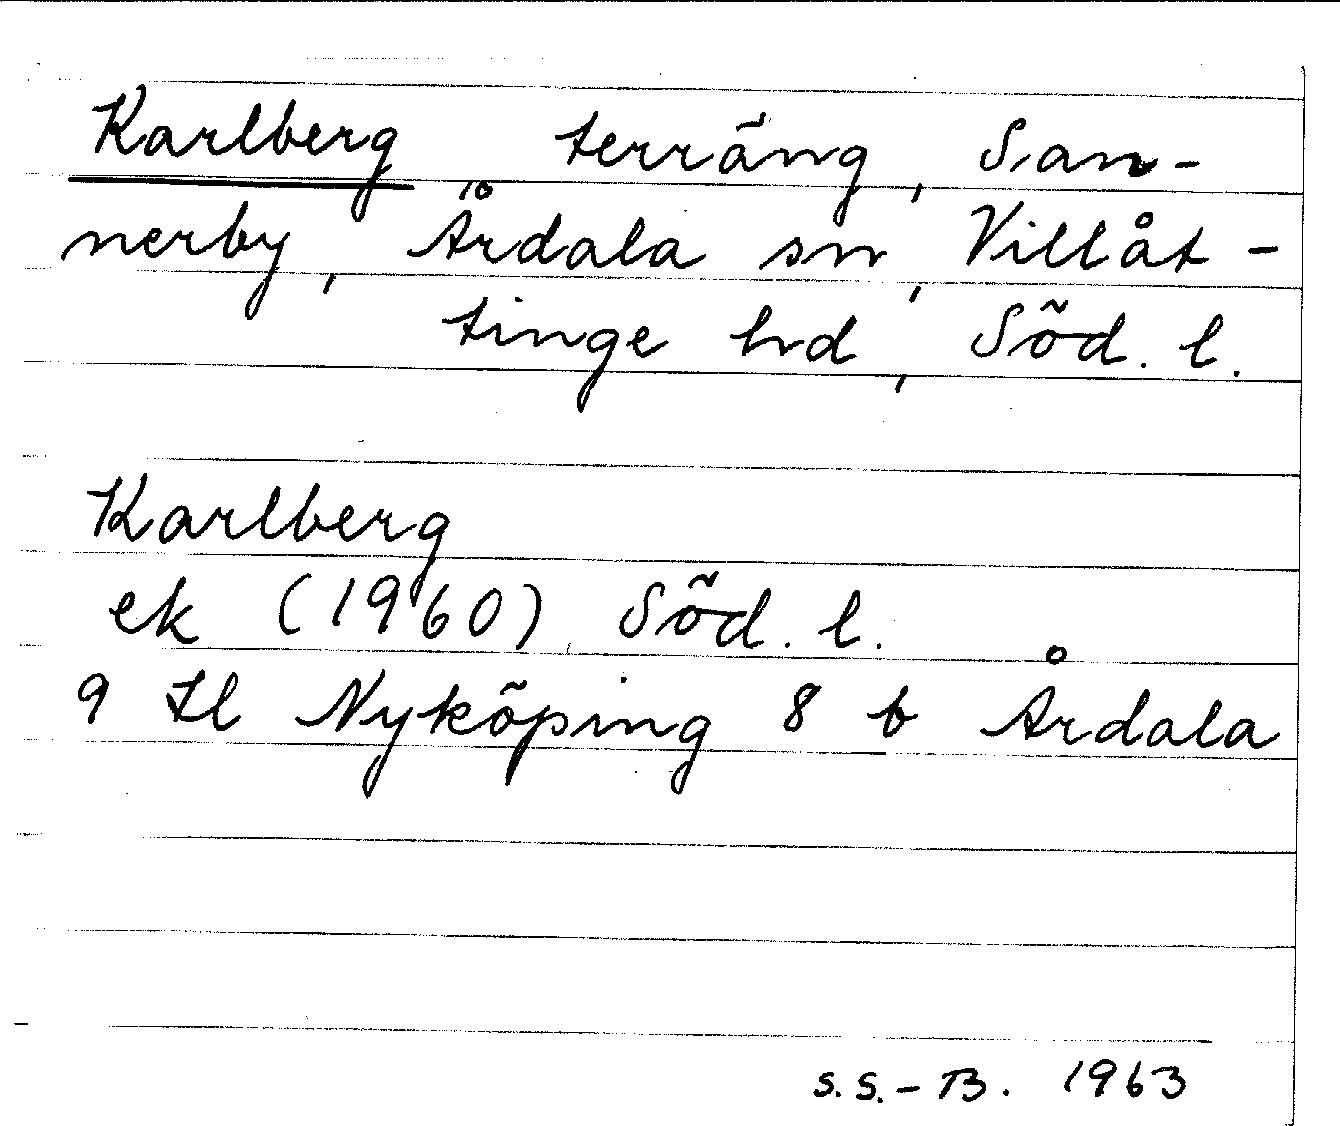 Karlberg, terräng, San-
nerby, Årdala sn, Villåt-
tinge hd, Söd. l.
Karlberg
ek (1960), Söd. l.
9 H Nyköping 8 b Årdala
S.S.-B. 1963